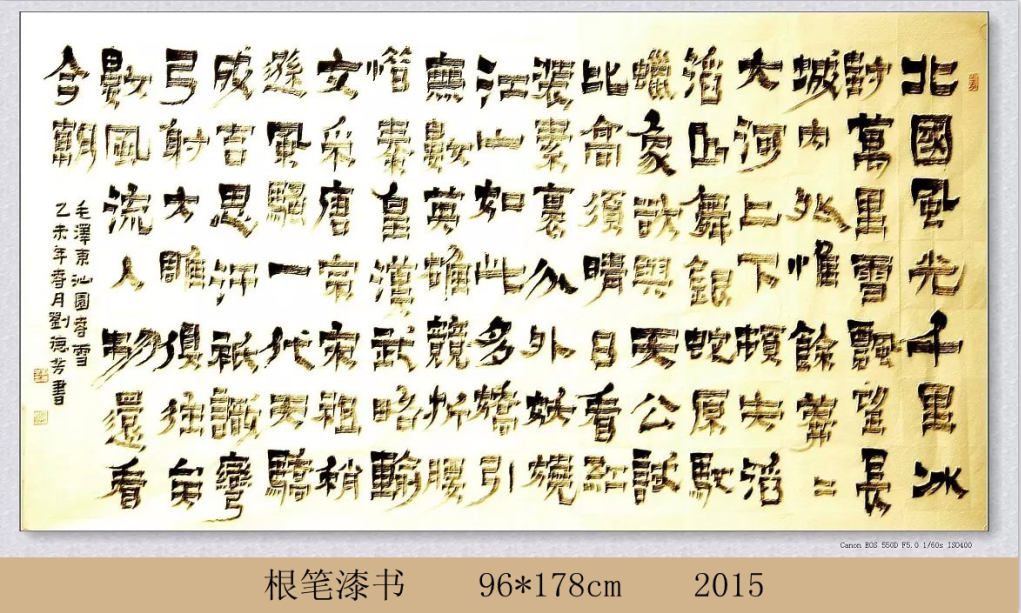 北國風光千里冰
封萬里雪飄望長
城内外惟餘莽〻
大河上下頓失滔
滔山舞銀蛇原馳
蠟象欲與天公試
比高須晴日看紅
裝素裹分外妖嬈
江山如此多嬌引
無數英雄競折腰
惜秦皇漢武略輸
文采唐宗宋祖稍
遜風騷一代天驕
成吉思汗祗識彎
弓射大雕俱往矣
數風流人物還看
今朝
毛澤東沁園春雪
乙未年春月劉德芳書
Canon EOS 550D F5.0 1/60s ISO400
根笔漆书 96*178cm 2015